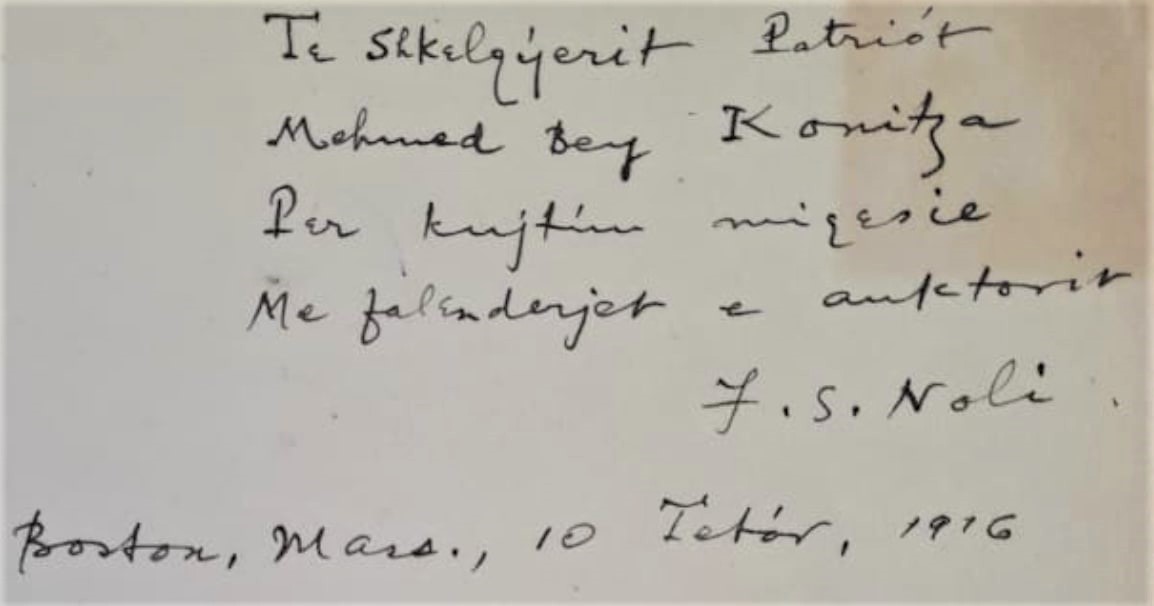 Tε Shkelqýerit Patriót
Mehmed Bey Konitza
Pεr kujtím miqεsie
Me falεnderjet e auktorit
F. S. Noli.
Boston, Mass., 10 Tetór, 1916